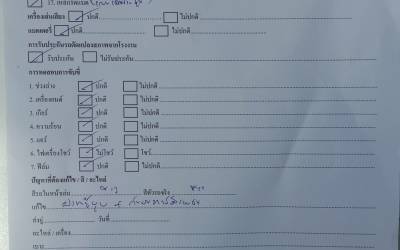 เครื่องเสียง ปกติ ไม่ปกติ
แบตเตอรี่ ปกติ ไม่ปกติ
การรับประกันรถดัดแปลงสภาพจากโรงงาน
รับประกัน ไม่รับประกัน
การทดสอบการขับขี่
1. ช่วงล่าง ปกติ ไม่ปกติ
2. เครื่องยนต์ ปกติ ไม่ปกติ
3. เกียร์ ปกติ ไม่ปกติ
4. ความร้อน ปกติ ไม่ปกติ
5. แอร์ ปกติ ไม่ปกติ
6. ไฟเครื่องโชว์ ไม่โชว์ โชว์
7. ฟิล์ม ปกติ ไม่ปกติ
ปัญหาที่ต้องแก้ไข / สี / อะไหล่
สีรถในหน้าเล่ม ขาว สีตัวรถจริง ขาว
แก้ไข
ส่งอู่ วันที่
อะไหล่ / เครื่อง
เบาะ